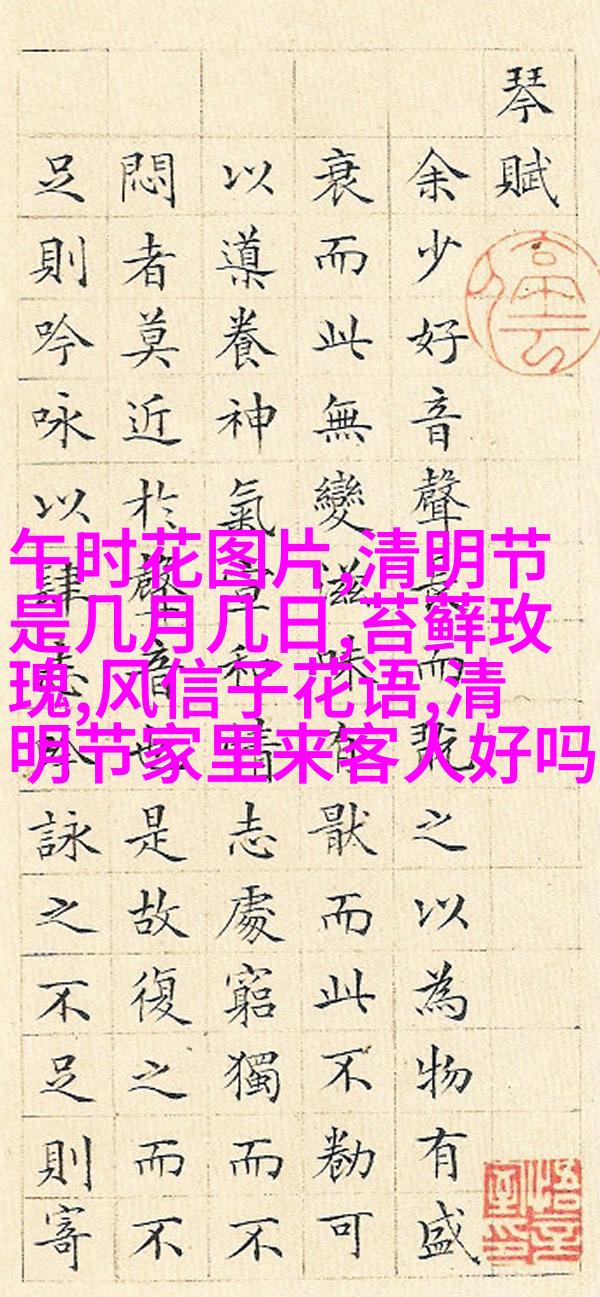 琴賦
余少好音聲長而翫之以為物有盛
衰而此無變滋味有猒而此不勌可
以導養神氣宣和情志處窮獨而不
悶者莫近於聲音也是故復之而不
足則吟咏以肆志吟詠之不足則寄
午时花图片,清明节
是几月几日,苔藓玫
瑰,风信子花语,清
明节家里来客人好吗